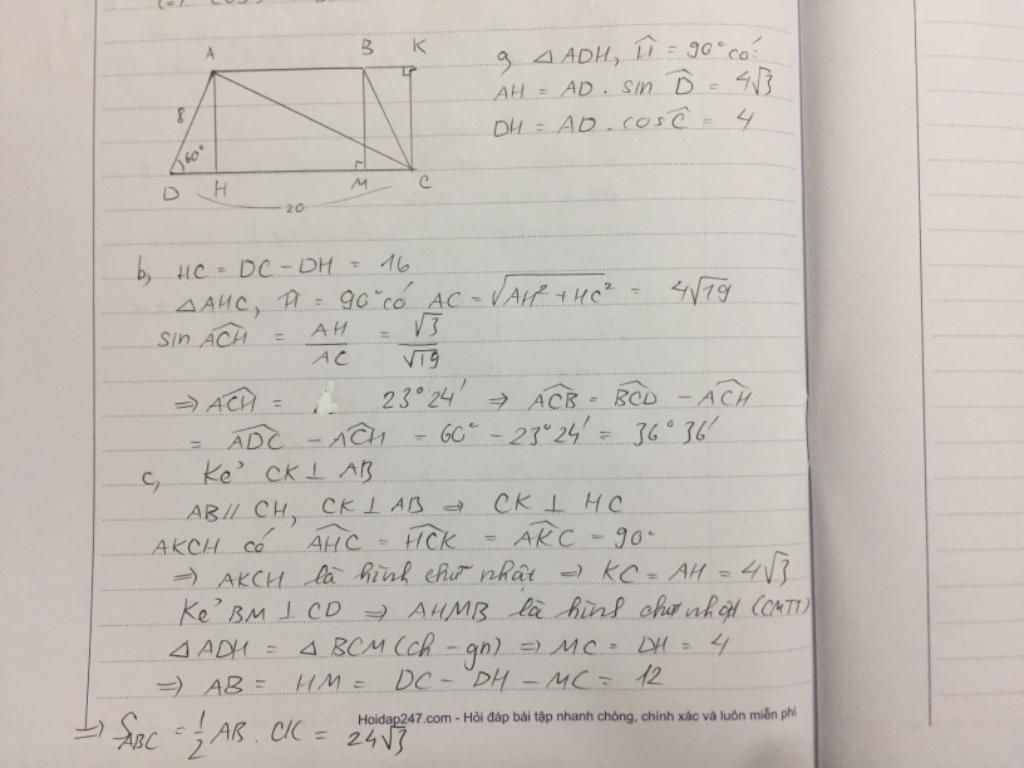 A B K
8
60°
D H M C
20
a, △ADH, Ĥ = 90° có:
AH = AD . sin D̂ = 4√3
DH = AD . cosĈ = 4
b, HC = DC - DH = 16
△AHC, Ĥ = 90° có AC = √(AH² + HC²) = 4√19
sin ACH̑ = AH/AC = √3/√19
⇒ ACH̑ = 23°24' ⇒ ACB̑ = BCD̑ - ACH̑
= ADC̑ - ACH̑ = 60° - 23°24' = 36°36'
c, Kẻ CK ⊥ AB
AB // CH, CK ⊥ AB ⇒ CK ⊥ HC
AKCH có AHC̑ = HCK̑ = AKC̑ = 90°
⇒ AKCH là hình chữ nhật ⇒ KC = AH = 4√3
Kẻ BM ⊥ CD ⇒ AHMB là hình chữ nhật (CMTT)
△ADH = △BCM (ch - gn) ⇒ MC = DH = 4
⇒ AB = HM = DC - DH - MC = 12
⇒ S_ABC = 1/2 AB . CK = 24√3
Hoidap247.com - Hỏi đáp bài tập nhanh chóng, chính xác và luôn miễn phí